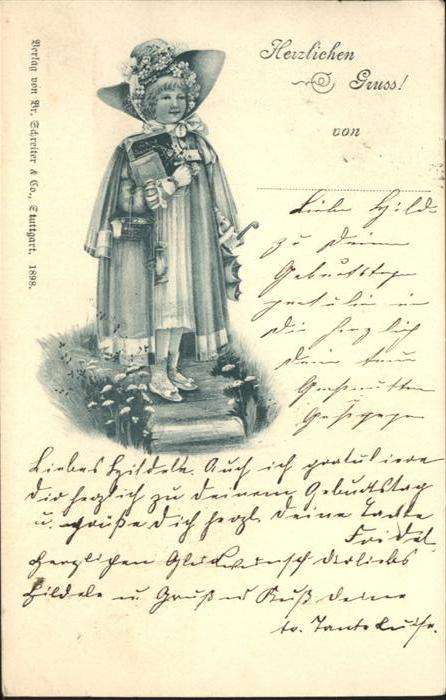 Herzlichen
Gruss!
von
Verlag von Br. Schreiter & Co., Stuttgart, 1898.
Liebe Hild-
zu Deinem
Geburtstag
gratulire
Dir herzlich
Deine treue
Großmutter
Liebes Hildele. Auch ich gratuliere
dir herzlich zu deinem Geburtstag
u. grüße dich herzl. deine Tante
Fridel
herzlichen Glückwunsch dir liebs
Hildele u Gruß u Kuß deine
Tante Luise.